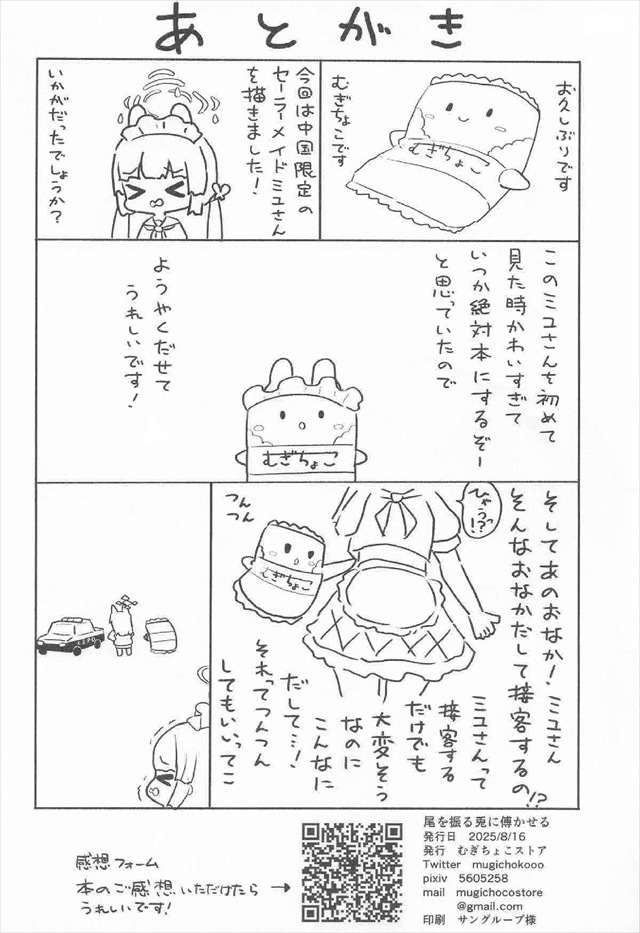 あとがき
お久しぶりです
むぎちょこ
むぎちょこです
今回は中国限定の
セーラーメイドミユさん
を描きました!
いかがだったでしょうか?
このミユさんを初めて
見た時かわいすぎて
いつか絶対本にするぞー
と思っていたので
むぎちょこ
ようやくだせて
うれしいです!
そしてあのおなか!ミユさん
そんなおなかだして接客するの!?
ひゃうっ!?
つんつん
むぎちょこ
ミユさんって
接客する
だけでも
大変そう
なのに
こんなに
だして…!
それってつんつん
してもいいってこ
感想フォーム
本のご感想いただけたら
うれしいです!
→
尾を振る兎に傅かせる
発行日 2025/8/16
発行 むぎちょこストア
Twitter mugichokooo
pixiv 5605258
mail mugichocostore
@gmail.com
印刷 サングループ様